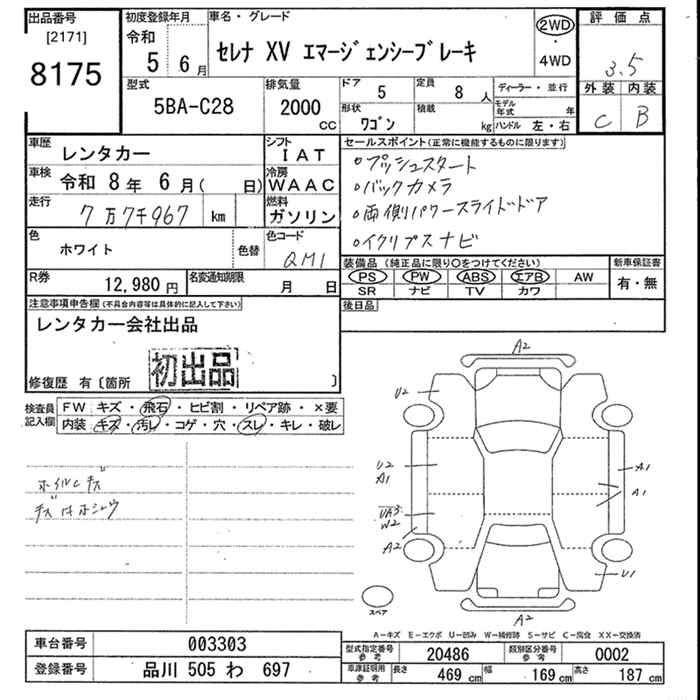 出品番号
[2171]
8175
初度登録年月
令和
5 6月
車名・グレード
セレナ XV エマージェンシーブレーキ
2WD
・
4WD
評価点
3.5
外装 内装
C B
型式
5BA-C28
排気量
2000
CC
ドア
5
定員
8人
形状
ワゴン
積載
kg
ディーラー・並行
モデル年式 年
ハンドル 左・右
車歴
レンタカー
シフト
IAT
車検
令和 8年 6月( 日)
冷房
WAAC
走行
7万7千967 km
燃料
ガソリン
色
ホワイト
色替
色コード
QM1
R券
12,980円
名変通知期限
月 日
セールスポイント(正常に機能するものに限ります)
・プッシュスタート
・バックカメラ
・両側パワースライドドア
・イクリプスナビ
装備品(純正品に限り〇をつけてください)
PS PW ABS エアB AW
SR ナビ TV カワ
新車保証書
有・無
後日品
注意事項申告欄(不具合内容等は具体的に記入して下さい)
レンタカー会社出品
初出品
修復歴 有〔箇所 〕
検査員記入欄
FW キズ・飛石・ヒビ割・リペア跡・×要
内装 キズ・汚レ・コゲ・穴・スレ・キレ・破レ
ホイルヒキズ
キズはホシュウ
A2
U2
U2
A1
UA3
W2
A2
A1
A1
U1
A2
スペア
A-キズ E-エクボ U-凹み W-補修跡 S-サビ C-腐食 XX-交換済
車台番号
003303
登録番号
品川 505 わ 697
型式指定番号
参考
20486
類別区分番号
参考
0002
車庫証明用
参考
長さ
469 cm
幅
169 cm
高さ
187 cm